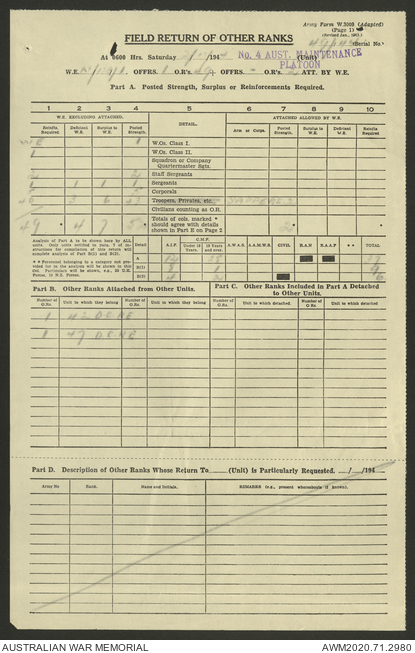 Army Form W.3009 (Adapted)
(Page 1)
(Revised Jan., 1943.)
FIELD RETURN OF OTHER RANKS
(Serial No.
At 0600 Hrs. Saturday / /194 (Unit)
No. 4 AUST. MAINTENANCE
PLATOON
W.E. OFFRS. O.R's. 49 + OFFRS. - O.R's. 2 ATT. BY W.E.
Part A. Posted Strength, Surplus or Reinforcements Required.
1 2 3 4 5 6 7 8 9 10
W.E. EXCLUDING ATTACHED. DETAIL. ATTACHED ALLOWED BY W.E.
Reinfts. Required. Deficient W.E. Surplus to W.E. Posted Strength. Arm or Corps. Posted Strength. Surplus to W.E. Deficient W.E. Reinfts. Required.
W.Os. Class I. 1
1 W.Os. Class II.
Squadron or Company Quartermaster Sgts.
2 Staff Sergeants 2
1 1 1 Sergeants
Corporals
46 3 6 Troopers, Privates, etc. SAPPERS 2
Civilians counting as O.R.
49 * 4 7 Totals of cols. marked * should agree with details shown in Part E on Page 2 2
Analysis of Part A to be shown here by ALL units. Only units entitled to reim. T of instructions for completion of this return will complete analysis of Part B(1) and B(2).
* * Personnel belonging to a category not provided for in the analysis will be shown in this Col. Particulars will be shown, e.g., 20 U.S. Forces, 10 N.Z. Forces.
Detail A.I.F. C.M.F. Under 19 Years 19 Years and over. A.W.A.S. A.A.M.W.S. CIVIL R.A.N R.A.A.F * * TOTAL
A
B(1)
B(2)
Part B. Other Ranks Attached from Other Units.
Part C. Other Ranks Included in Part A Detached to Other Units.
Number of O.Rs. Unit to which they belong Number of O.Rs. Unit to which they belong Number of O.Rs. Unit to which detached. Number of O.Rs. Unit to which detached
1 42 DCRE
1 47 DCRE
Part D. Description of Other Ranks Whose Return To (Unit) is Particularly Requested. / /194
Army No Rank. Name and Initials. REMARKS (e.g., present whereabouts if known).
AUSTRALIAN WAR MEMORIAL
AWM2020.71.2980